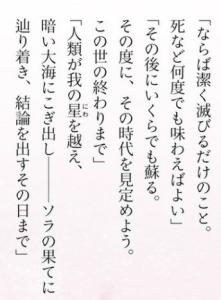 「ならば潔く滅びるだけのこと。
死など何度でも味わえばよい」
「その後にいくらでも蘇る。
その度に、その時代を見定めよう。
この世の終わりまで」
「人類が我の星を越え、
暗い大海にこぎ出し――ソラの果てに
辿り着き、結論を出すその日まで」